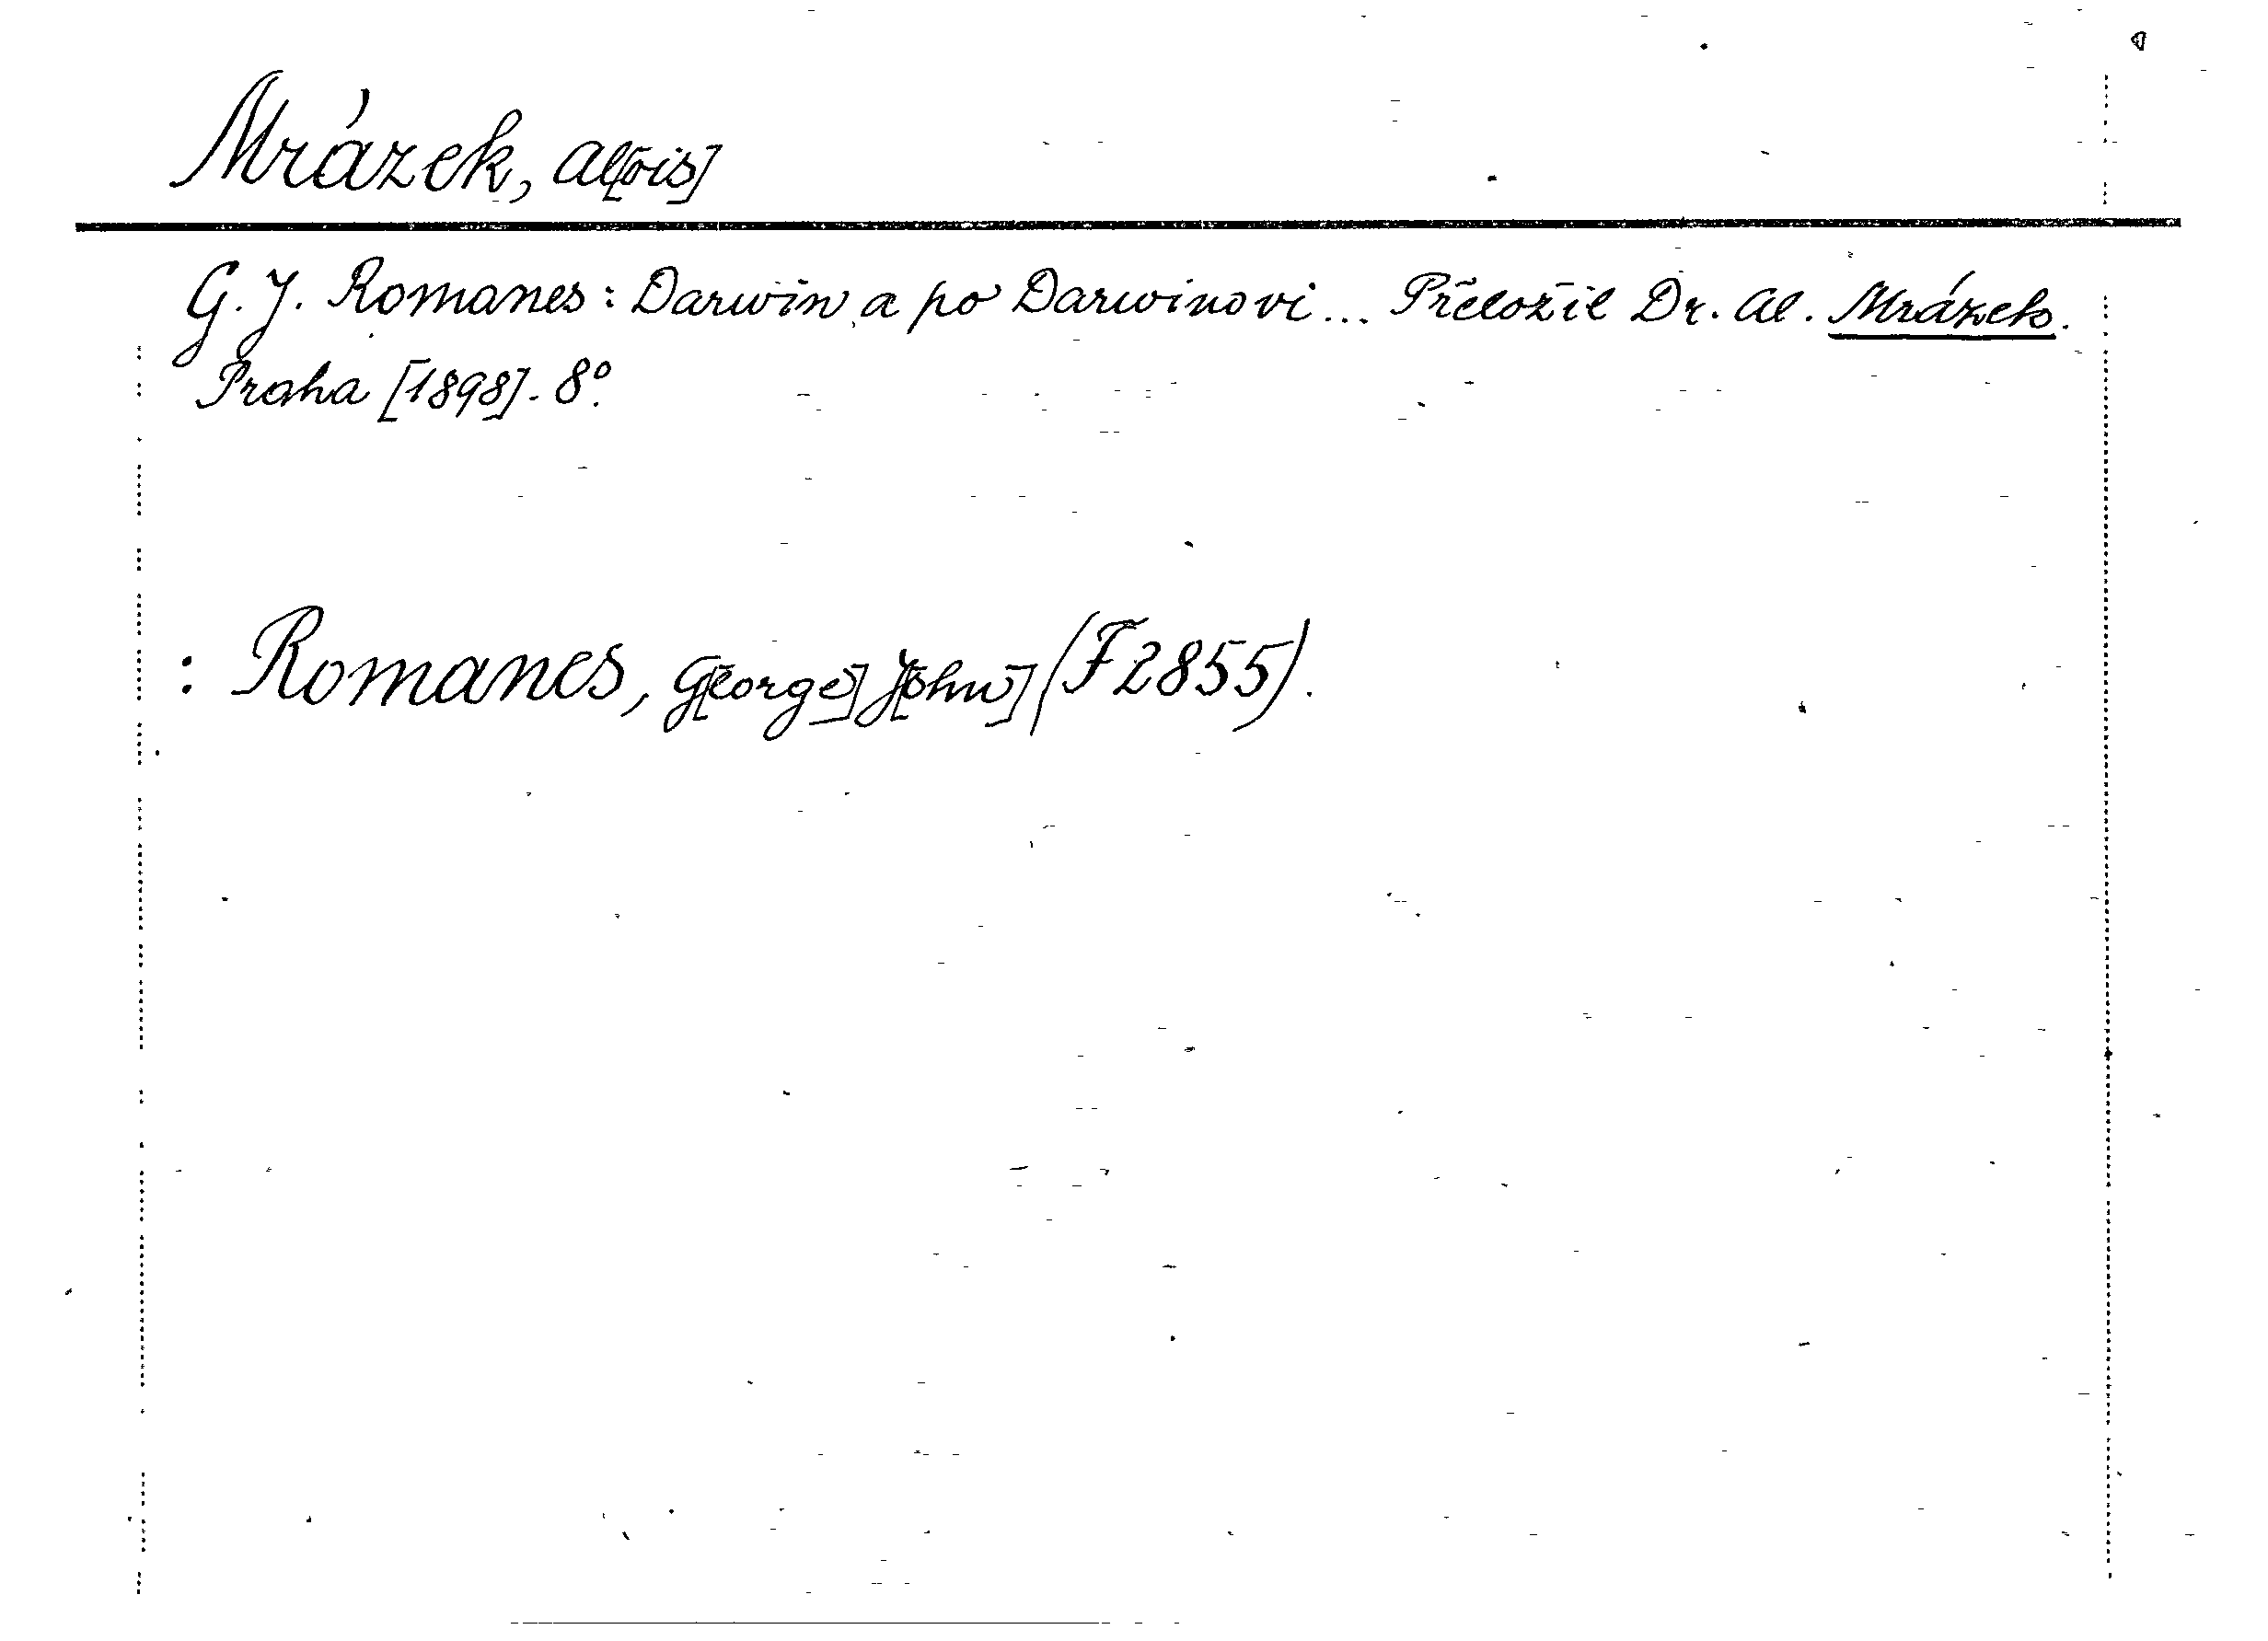 Mrázek, Al[ois]
G. J. Romanes: Darwin a po Darwinovi... Přeložil Dr. Al. Mrázek.
Praha [1898]. 8°.
: Romanes, G[eorge] J[ohn] (F 2855).